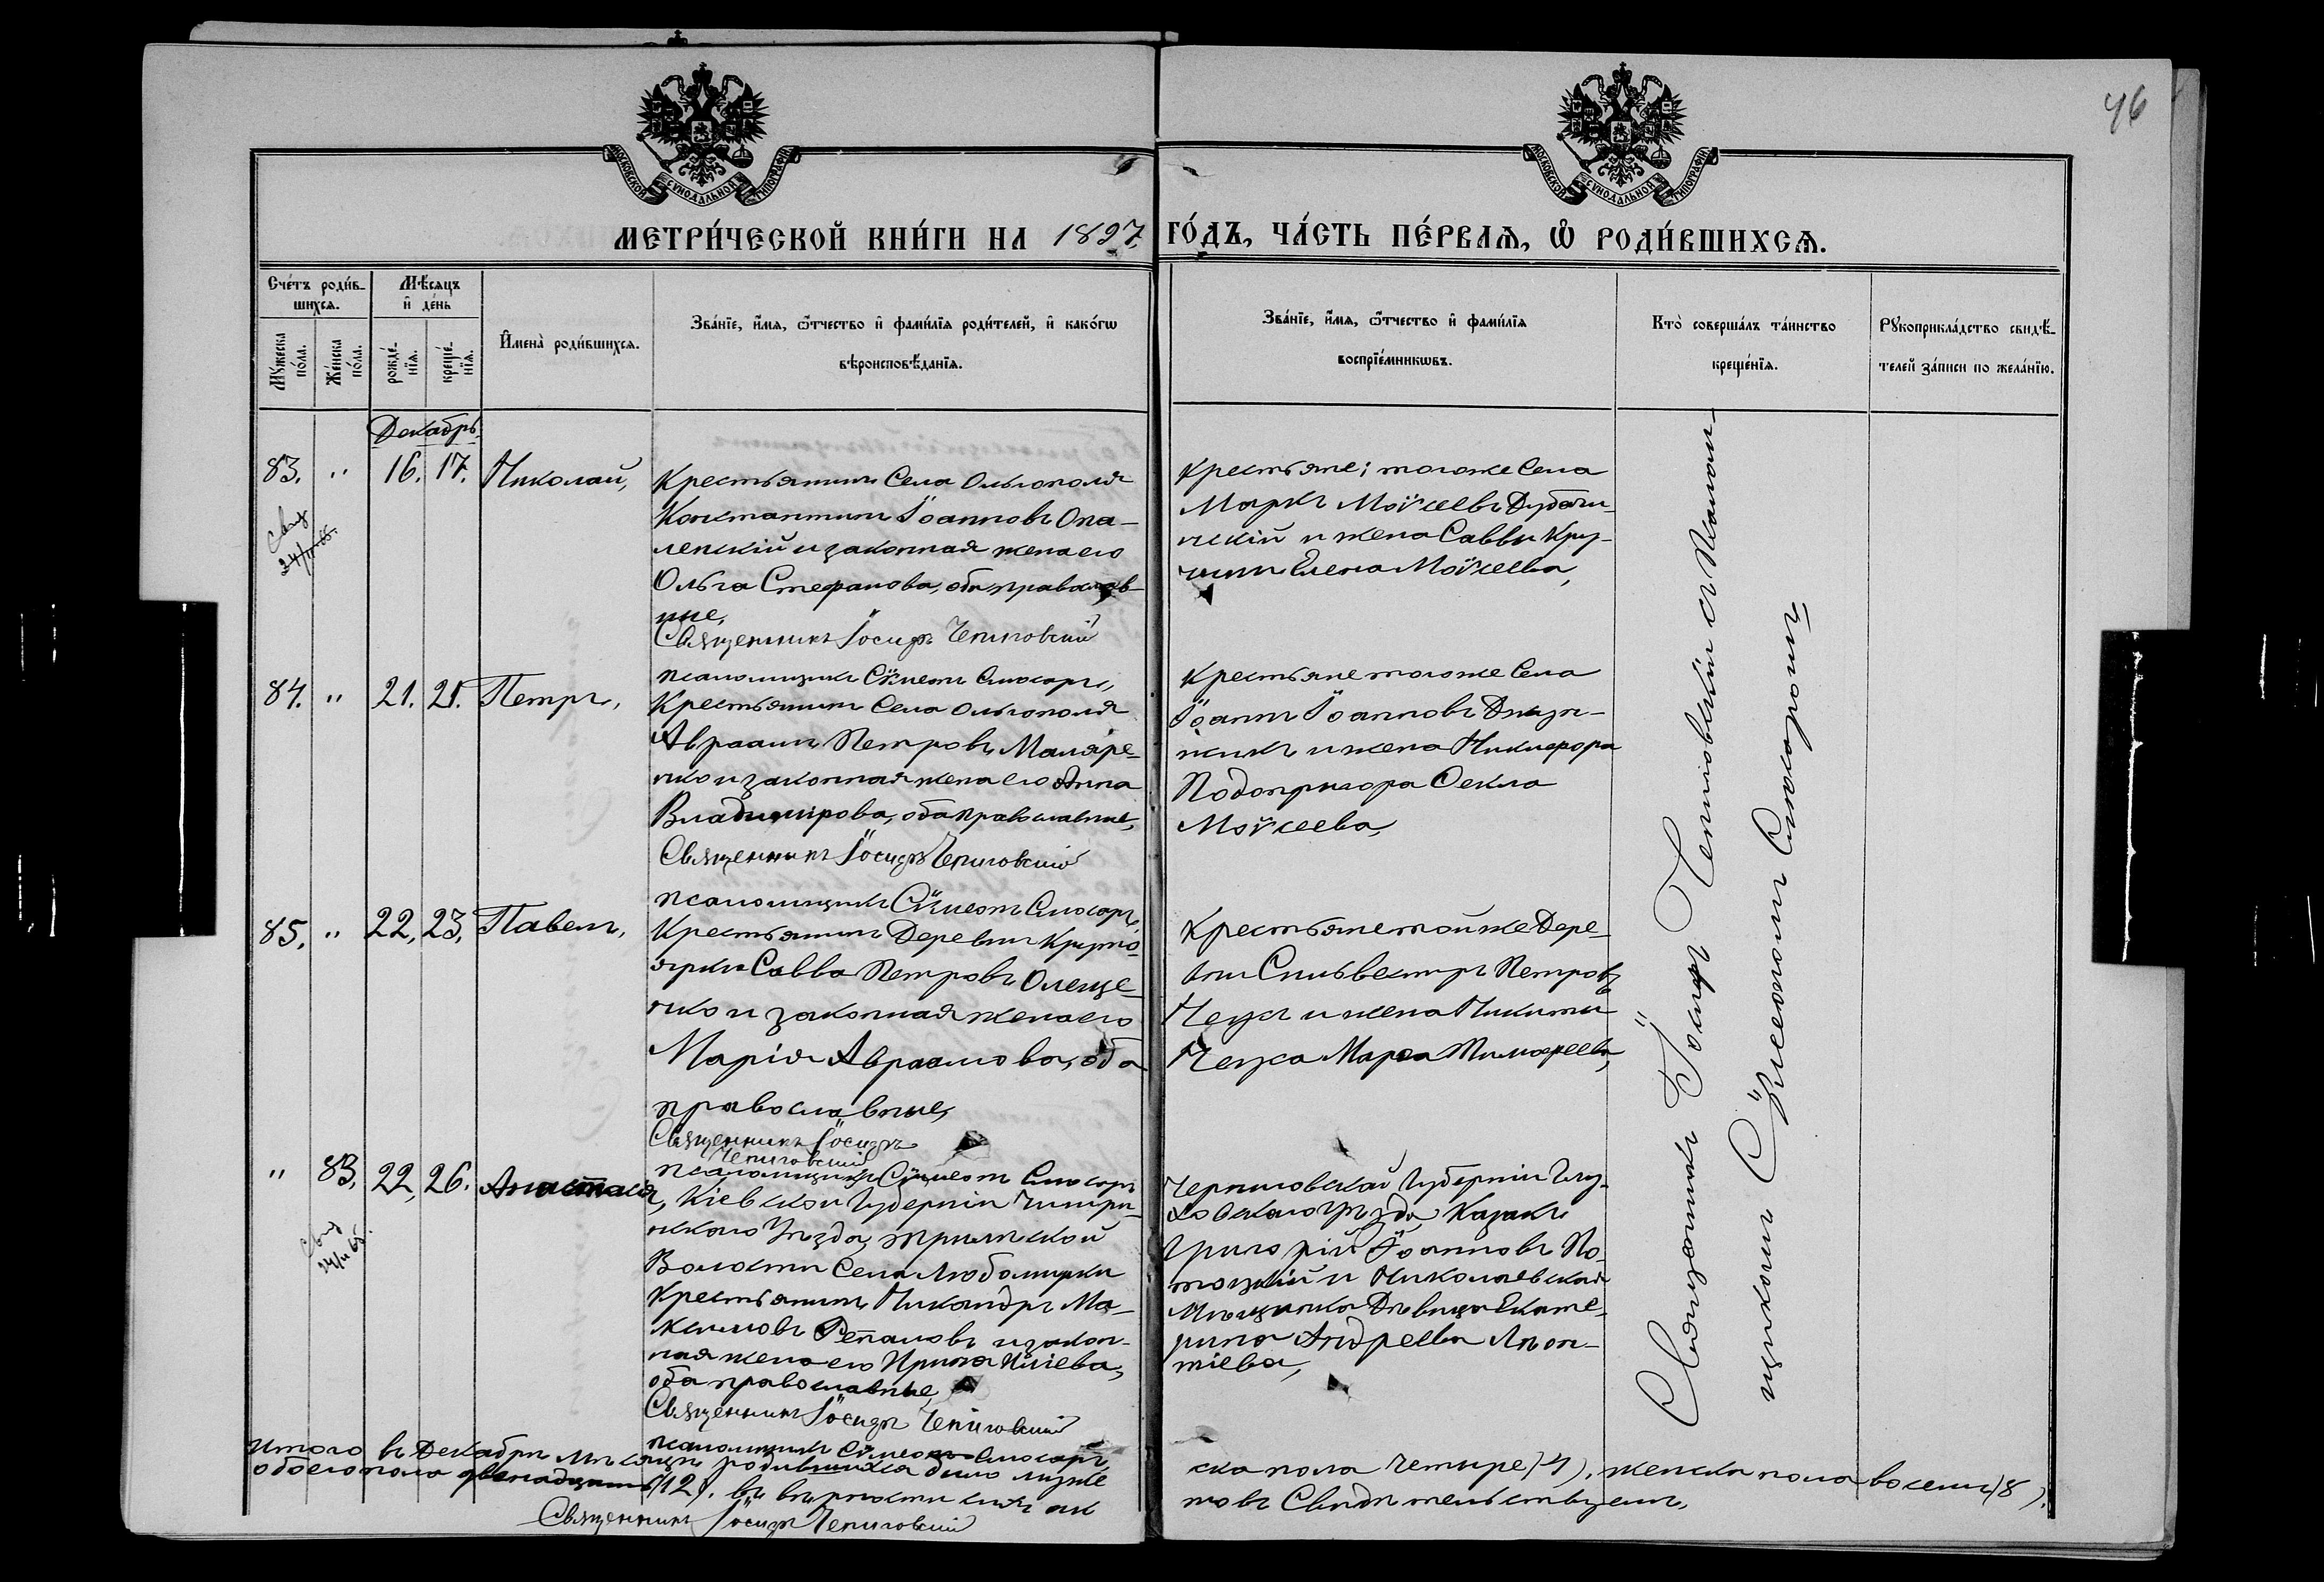 46
МОСКОВСКОЙ СѴНОДАЛЬНОЙ ТИПОГРАФІИ
МОСКОВСКОЙ СѴНОДАЛЬНОЙ ТИПОГРАФІИ
МЕТРИ́ЧЕСКОЙ КНИ́ГИ НА 1897 ГО́ДЪ, ЧА́СТЬ ПЕ́РВАѦ, Ѡ҆ РОДИ́ВШИХСѦ.
Сче́тъ роди́в-
шихсѧ.
Мѣ́сѧцъ
и҆ де́нь
Мꙋ́жеска по́ла.
Же́нска по́ла.
рожде́-
нїѧ.
креще́-
нїѧ.
И҆мена̀ роди́вшихсѧ.
Зва́нїе, и҆́мѧ, ѻ҆́тчество и҆ фами́лїѧ роди́телей, и҆ како́гѡ
вѣроисповѣ́данїѧ.
Зва́нїе, и҆́мѧ, ѻ҆́тчество и҆ фами́лїѧ
воспрїе́мникѡвъ.
Кто̀ соверша́лъ та́инство
креще́нїѧ.
Рꙋкоприкла́дство свидѣ́-
телей за́писи по жела́нїю.
Декабрь
83. " 16. 17. Николай,
Крестьянинъ Села Ольгополя
Константинъ Іоанновъ Опа-
ленскій и законная жена его
Ольга Стефанова, оба православ-
ные,
Священникъ Іосифъ Чепиговскій
псаломщикъ Сѵмеонъ Слюсаръ,
Крестьяне; тогоже Села
Маркъ Моѵсеевъ Дубачи-
нскій и жена Саввы Кру-
Елена Моѵсеева,
84. " 21. 21. Петръ,
Крестьянинъ Села Ольгополя
Авраамъ Петровъ Маляре-
нко и законная жена его Анна
Владимірова, оба православные,
Священникъ Іосифъ Чепиговскій
псаломщикъ Сѵмеонъ Слюсаръ,
Крестьяне тогоже Села
Іоаннъ Іоанновъ
и жена Никифора
Подопригора Ѳекла
Моѵсеева,
85. " 22, 23, Павелъ,
Крестьянинъ Деревни Круто-
ярки Савва Петровъ Олеще-
нко и законная жена его
Марія Авраамова, оба
православные,
Священникъ Іосифъ
Чепиговскій
псаломщикъ Сѵмеонъ Слюсаръ
Крестьяне тойже Дере-
вни Сильвестръ Петровъ
и жена Никиты
Марѳа Тимоѳеева,
" 83, 22, 26. Анастасія,
Кіевской Губерніи Чигри-
нскаго Уѣзда,
Волости Села Любомирки
Крестьянинъ Никандръ Ма-
ксимовъ Репановъ и закон-
ная жена его Ирина Иліева,
оба православные,
Священникъ Іосифъ Чепиговскій
псаломщикъ Сѵмеонъ Слюсаръ
Черниговской Губерніи Глу-
ховскаго уѣзда, Казакъ
Григорій Іоанновъ По-
тоцкій и Николаевская
Мѣщанка Дѣвица Екате-
рина Андреева Леон-
тіева,
Священникъ Іосифъ Чепиговскій съ Псалом-
щикомъ Сѵмеономъ Слюсаромъ
Итого въ Декабрѣ мѣсяцѣ родившихся было муже
ска пола четыре (4). женска пола восемь (8).
обоего пола двенадцать (12). въ вѣрности сихъ ак
товъ Свидѣтельствуемъ,
Священникъ Іосифъ Чепиговскій